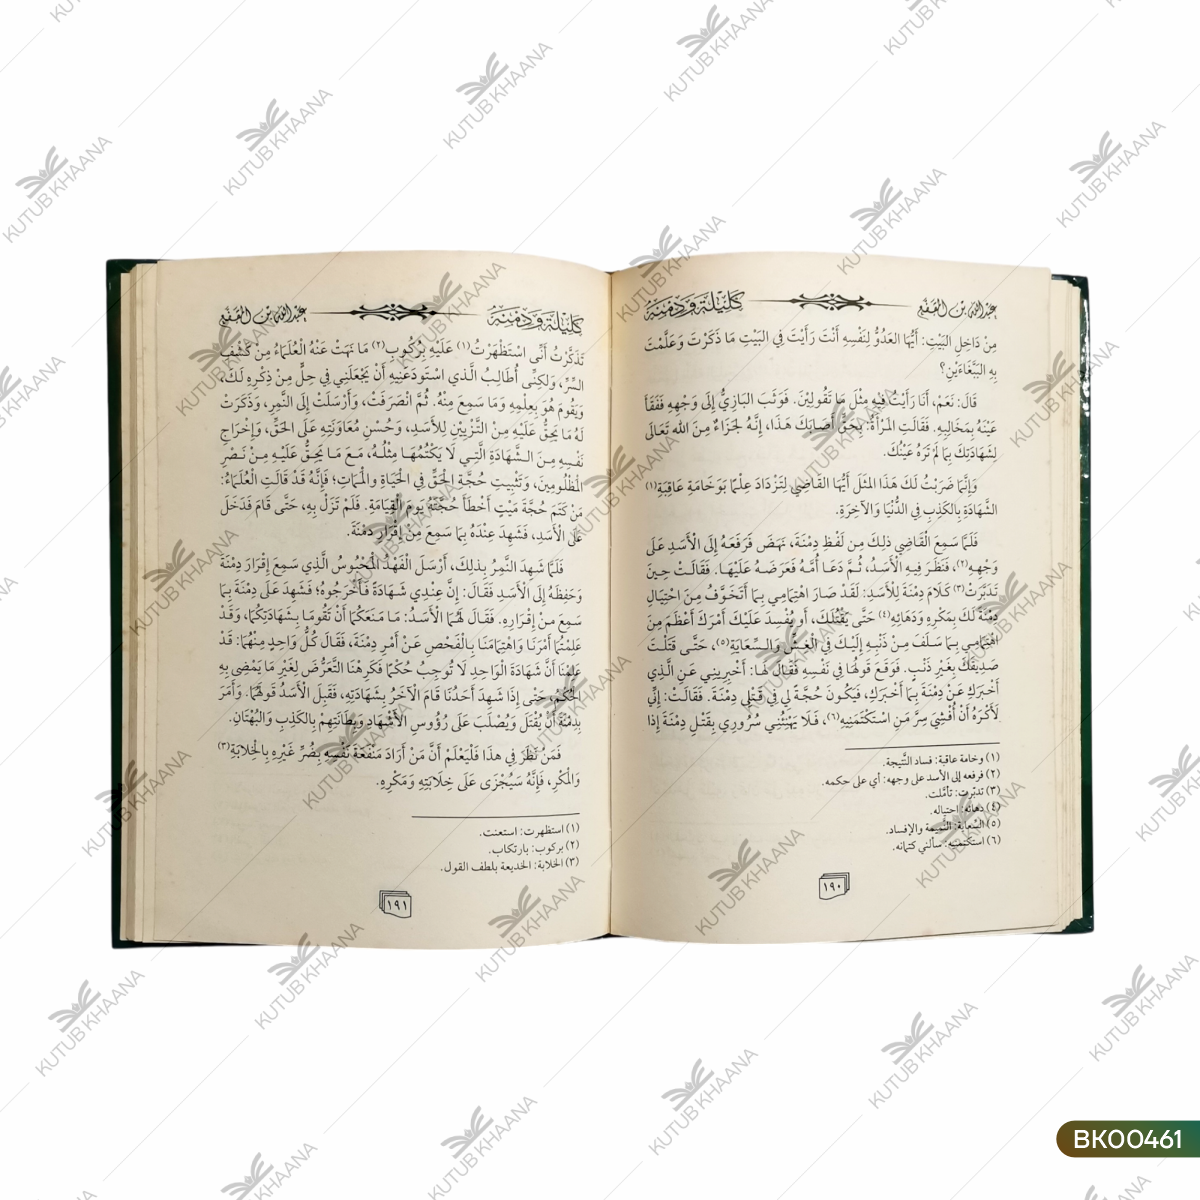 كليلة ودمنة
عبد الله بن المقفع
مِنْ دَاخِلِ البَيْتِ: أَيُّهَا العَدُوُّ لِنَفْسِهِ أَنْتَ رَأَيْتَ فِي البَيْتِ مَا ذَكَرْتَ وَعَلَّمْتَ
بِهِ البَبَّغَاءَيْنِ؟
قَالَ: نَعَمْ، أَنَا رَأَيْتُ فِيهِ مِثْلَ مَا تَقُولِينَ. فَوَثَبَ البَازِيُّ إِلَى وَجْهِهِ فَفَقَأَ
عَيْنَهُ بِمَخَالِبِهِ. فَقَالَتِ المَرْأَةُ: بِحَقٍّ أَصَابَكَ هَذَا، إِنَّهُ لَجَزَاءٌ مِنَ الله تَعَالَى
لِشَهَادَتِكَ بِمَا لَمْ تَرَهُ عَيْنُكَ.
وَإِنَّمَا ضَرَبْتُ لَكَ هَذَا المَثَلَ أَيُّهَا القَاضِي لِتَزْدَادَ عِلْمًا بِوَخَامَةِ عَاقِبَةِ(١)
الشَّهَادَةِ بِالكَذِبِ فِي الدُّنْيَا وَالآخِرَةِ.
فَلَمَّا سَمِعَ القَاضِي ذلِكَ مِن لَفْظِ دِمْنَةَ، نَهَضَ فَرَفَعَهُ إِلَى الأَسَدِ عَلَى
وَجْهِهِ(٢)، فَنَظَرَ فِيهِ الأَسَدُ، ثُمَّ دَعَا أُمَّهُ فَعَرَضَهُ عَلَيْهَا. فَقَالَتْ حِينَ
تَدَبَّرَتْ(٣) كَلَامَ دِمْنَةَ لِلأَسَدِ: لَقَدْ صَارَ اهْتِمَامِي بِمَا أَتَخَوَّفُ مِنَ احْتِيَالِ
دِمْنَةَ لَكَ بِمَكْرِهِ وَدَهَائِهِ(٤) حَتَّى يَقْتُلَكَ، أَو يُفْسِدَ عَلَيْكَ أَمْرَكَ أَعْظَمَ مِنَ
اهْتِمَامِي بِمَا سَلَفَ مِنْ ذَنْبِهِ إِلَيْكَ فِي الغِشِّ وَالسِّعَايَةِ(٥)، حَتَّى قَتَلْتَ
صَدِيقَكَ بِغَيْرِ ذَنْبٍ. فَوَقَعَ قَوْلُهَا فِي نَفْسِهِ فَقَالَ لَهَا: أَخْبِرِينِي عَنِ الَّذِي
أَخْبَرَكِ عَنْ دِمْنَةَ بِمَا أَخْبَرَكِ، فَيَكُونَ حُجَّةً لِي فِي قَتْلِي دِمْنَةَ. فَقَالَتْ: إِنِّي
لَأَكْرَهُ أَنْ أُفْشِيَ سِرَّ مَنِ اسْتَكْتَمَنِيهِ(٦)، فَلَا يَهْنِئُنِي سُرُورِي بِقَتْلِ دِمْنَةَ إِذَا
(١) وخامة عاقبة: فساد النَّتيجة.
(٢) فرفعه إلى الأسد على وجهه: أي على حكمه.
(٣) تدبّرت: تأمَّلت.
(٤) دهائه: احتياله.
(٥) السِّعاية: النَّميمة والإفساد.
(٦) استكتمنيه: سألني كتمانه.
١٩٠
كليلة ودمنة
عبد الله بن المقفع
تَذَكَّرْتُ أَنِّي اسْتَظْهَرْتُ(١) عَلَيْهِ بِرُكُوبِ(٢) مَا نَهَتْ عَنْهُ العُلَمَاءُ مِن كَشْفِ
السِّرِّ، وَلَكِنِّي أُطَالِبُ الَّذِي اسْتَوْدَعَنِيهِ أَنْ يَجْعَلَنِي فِي حِلٍّ مِنْ ذِكْرِهِ لَكَ،
وَيَقُومَ هُوَ بِعِلْمِهِ وَمَا سَمِعَ مِنْهُ. ثُمَّ انْصَرَفَتْ، وَأَرْسَلَتْ إِلَى النَّمِرِ، وَذَكَرَتْ
لَهُ مَا يَحِقُّ عَلَيْهِ مِنَ التَّزْيِينِ لِلأَسَدِ، وَحُسْنِ مُعَاوَنَتِهِ عَلَى الحَقِّ، وَإِخْرَاجِ
نَفْسِهِ مِنَ الشَّهَادَةِ الَّتِي لَا يَكْتُمُهَا مِثْلُهُ، مَعَ مَا يَحِقُّ عَلَيْهِ مِنْ نَصْرِ
المَظْلُومِينَ، وَتَثْبِيتِ حُجَّةِ الحَقِّ فِي الحَيَاةِ وَالمَمَاتِ؛ فَإِنَّهُ قَدْ قَالَتِ العُلَمَاءُ:
مَنْ كَتَمَ حُجَّةَ مَيْتٍ أَخْطَأَ حُجَّتَهُ يَومَ القِيَامَةِ. فَلَمْ تَزَلْ بِهِ، حَتَّى قَامَ فَدَخَلَ
عَلَى الأَسَدِ، فَشَهِدَ عِنْدَهُ بِمَا سَمِعَ مِنْ إِقْرَارِ دِمْنَةَ.
فَلَمَّا شَهِدَ النَّمِرُ بِذلِكَ، أَرْسَلَ الفَهْدُ المَحْبُوسُ الَّذِي سَمِعَ إِقْرَارَ دِمْنَةَ
وَحَفِظَهُ إِلَى الأَسَدِ فَقَالَ: إِنَّ عِنْدِي شَهَادَةً فَأَخْرِجُوهُ؛ فَشَهِدَ عَلَى دِمْنَةَ بِمَا
سَمِعَ مِنْ إِقْرَارِهِ. فَقَالَ لَهُمَا الأَسَدُ: مَا مَنَعَكُمَا أَنْ تَقُومَا بِشَهَادَتِكُمَا، وَقَدْ
عَلِمْتُمَا أَمْرَنَا وَاهْتِمَامَنَا بِالفَحْصِ عَنْ أَمْرِ دِمْنَةَ، فَقَالَ كُلُّ وَاحِدٍ مِنْهُمَا: قَدْ
عَلِمْنَا أَنَّ شَهَادَةَ الوَاحِدِ لَا تُوجِبُ حُكْمًا فَكَرِهْنَا التَّعَرُّضَ لِغَيْرِ مَا يَمْضِي بِهِ
الحُكْمُ، حَتَّى إِذَا شَهِدَ أَحَدُنَا قَامَ الآخَرُ بِشَهَادَتِهِ، فَقَبِلَ الأَسَدُ قَوْلَهُمَا. وَأَمَرَ
بِدِمْنَةَ أَنْ يُقْتَلَ وَيُصْلَبَ عَلَى رُؤُوسِ الأَشْهَادِ وَبِطَانَتِهِمْ بِالكَذِبِ وَالبُهْتَانِ.
فَمَنْ نَظَرَ فِي هذَا فَلْيَعْلَمْ أَنَّ مَنْ أَرَادَ مَنْفَعَةَ نَفْسِهِ بِضُرِّ غَيْرِهِ بِالخِلَابَةِ(٣)
وَالمَكْرِ، فَإِنَّهُ سَيُجْزَى عَلَى خِلَابَتِهِ وَمَكْرِهِ.
(١) استظهرت: استعنت.
(٢) بركوب: بارتكاب.
(٣) الخلابة: الخديعة بلطف القول.
١٩١
KUTUB KHAANA
BK00461